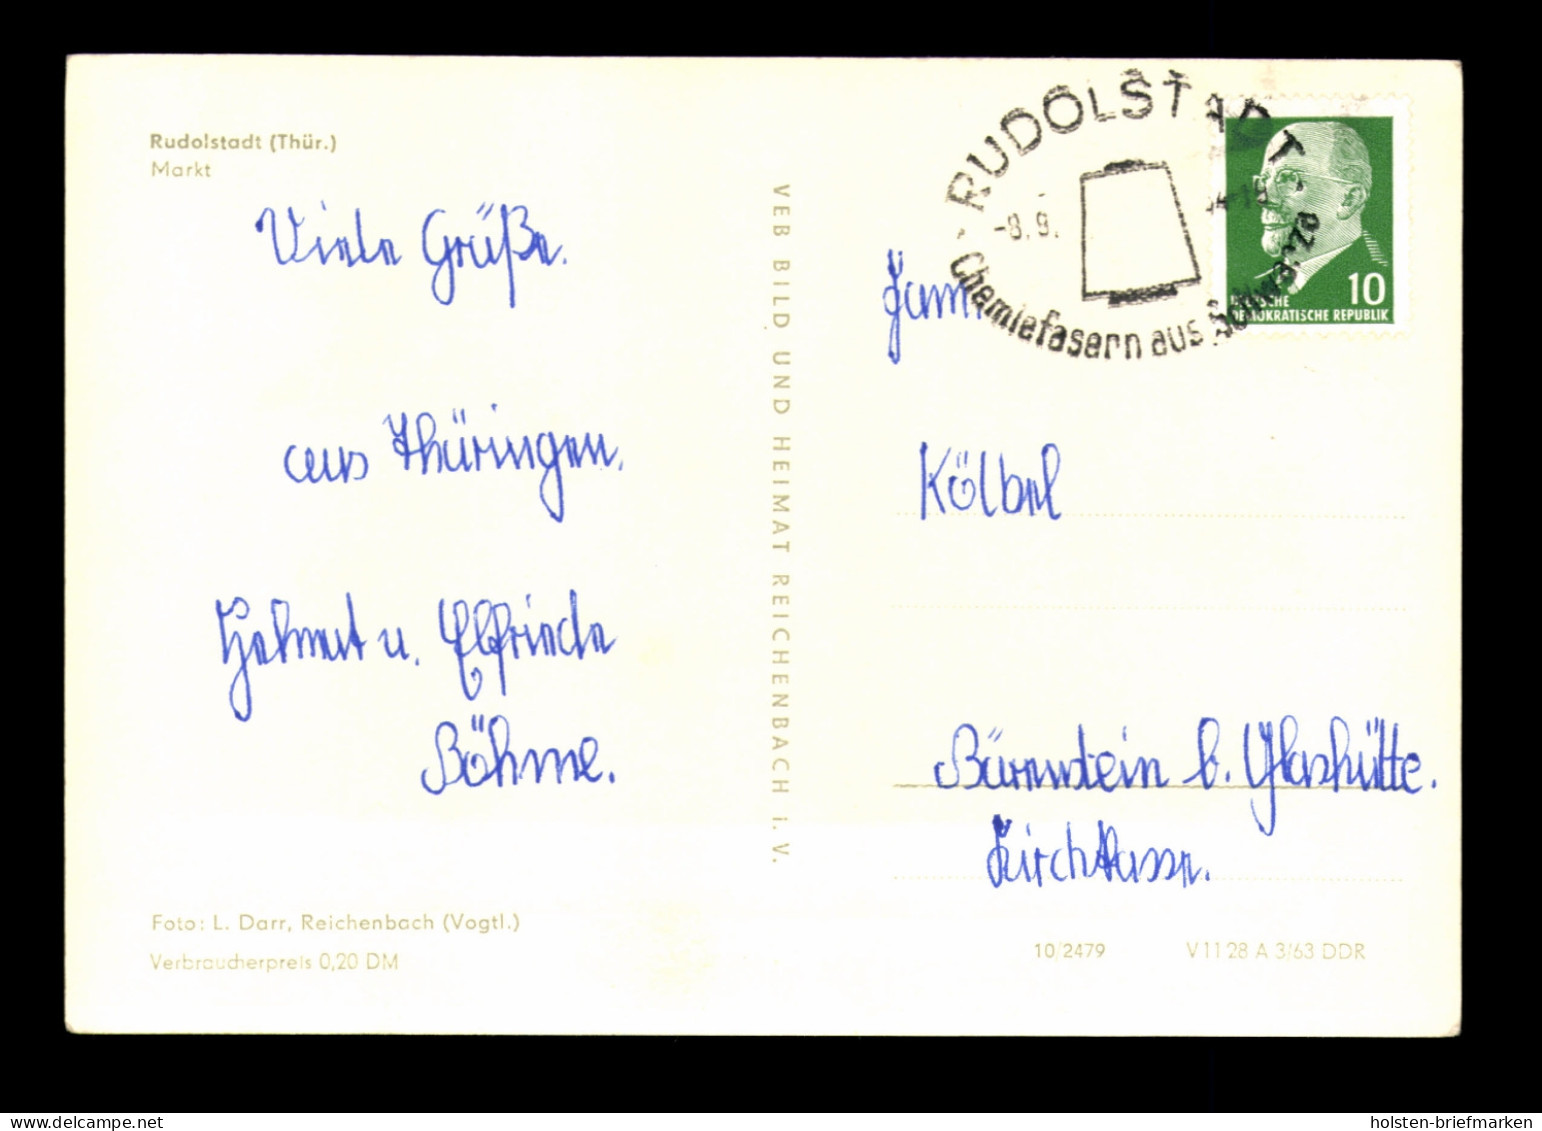 Rudolstadt (Thür.)
Markt
Viele Grüße.
aus Thüringen.
Helmut u. Elfriede
Böhme.
Foto: L. Darr, Reichenbach (Vogtl.)
Verbraucherpreis 0,20 DM
VEB BILD UND HEIMAT REICHENBACH i. V.
RUDOLSTADT
-8. 9.
Chemiefasern aus Schwarza
10
DEUTSCHE
DEMOKRATISCHE REPUBLIK
Fam.
Kölbel
Bärenstein b. Glashütte.
Kirchkasse.
10/2479 V 11 28 A 3/63 DDR
www.delcampe.net
holsten-briefmarken